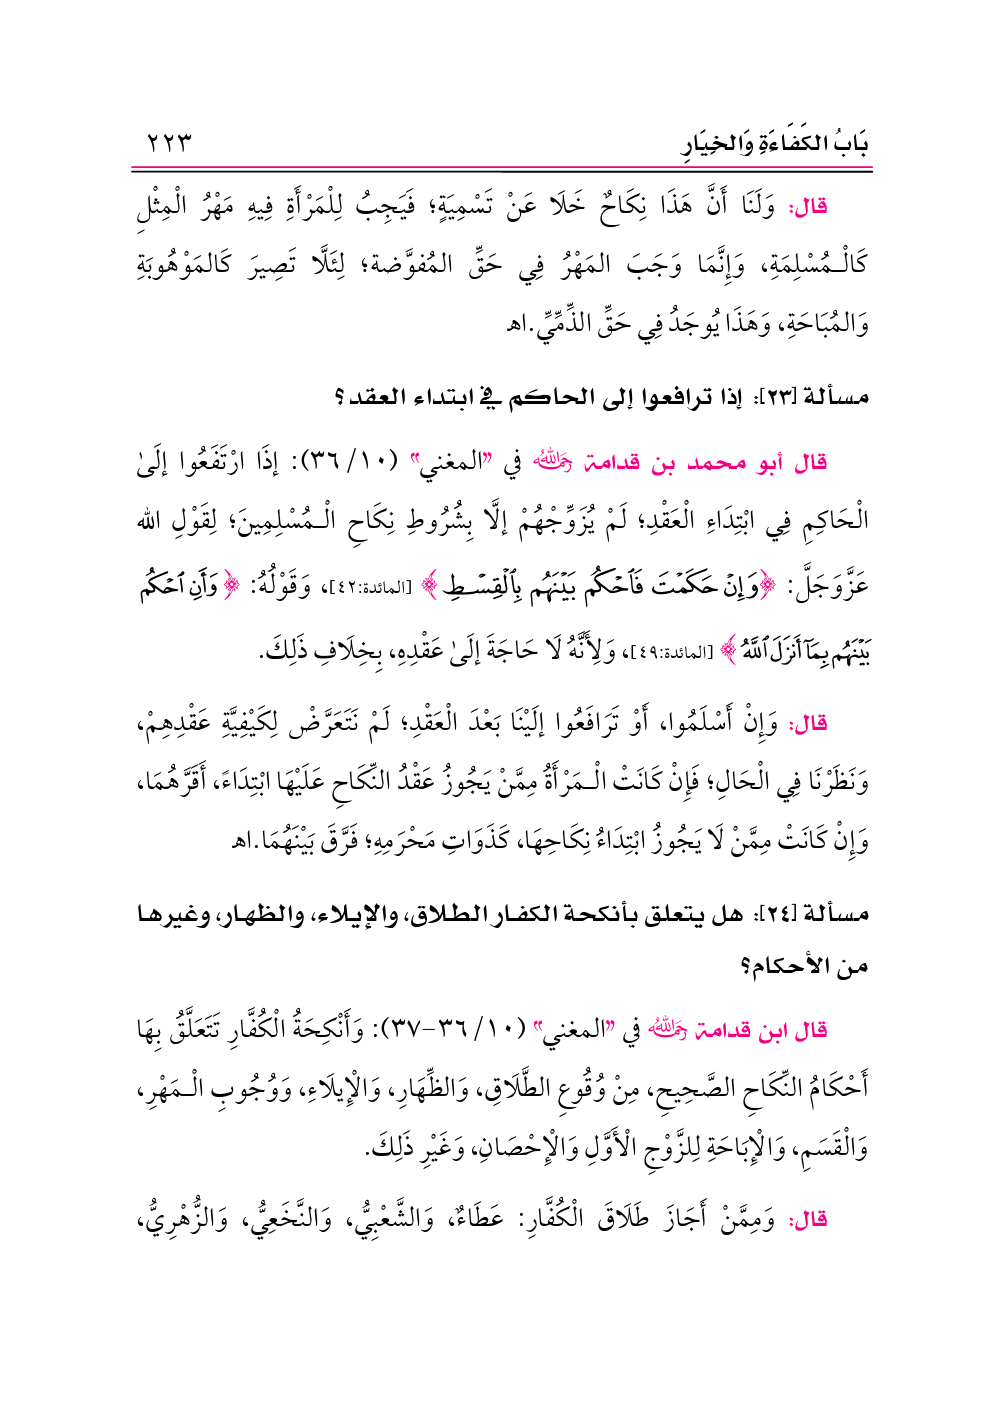 بَابُ الكَفَاءَةِ وَالخِيَارِ ٢٢٣
قال: وَلَنَا أَنَّ هَذَا نِكَاحٌ خَلَا عَنْ تَسْمِيَةٍ؛ فَيَجِبُ لِلْمَرْأَةِ فِيهِ مَهْرُ الْمِثْلِ
كَالْـمُسْلِمَةِ، وَإِنَّمَا وَجَبَ المَهْرُ فِي حَقِّ المُفوَّضة؛ لِئَلَّا تَصِيرَ كَالمَوْهُوبَةِ
وَالمُبَاحَةِ، وَهَذَا يُوجَدُ فِي حَقِّ الذِّمِّيِّ.اهـ
مسألة [٢٣]: إذا ترافعوا إلى الحاكم في ابتداء العقد؟
قال أبو محمد بن قدامة رَحِمَهُ اللهُ في "المغني" (١٠/ ٣٦): إذَا ارْتَفَعُوا إلَىٰ
الْحَاكِمِ فِي ابْتِدَاءِ الْعَقْدِ؛ لَمْ يُزَوِّجْهُمْ إلَّا بِشُرُوطِ نِكَاحِ الْـمُسْلِمِينَ؛ لِقَوْلِ الله
عَزَّ وَجَلَّ: ﴿وَإِنْ حَكَمْتَ فَٱحْكُم بَيْنَهُم بِٱلْقِسْطِ﴾ [المائدة:٤٢]، وَقَوْلُهُ: ﴿وَأَنِ ٱحْكُم
بَيْنَهُم بِمَآ أَنزَلَ ٱللَّهُ﴾ [المائدة:٤٩]، وَلِأَنَّهُ لَا حَاجَةَ إلَىٰ عَقْدِهِ، بِخِلَافِ ذَلِكَ.
قال: وَإِنْ أَسْلَمُوا، أَوْ تَرَافَعُوا إلَيْنَا بَعْدَ الْعَقْدِ؛ لَمْ نَتَعَرَّضْ لِكَيْفِيَّةِ عَقْدِهِمْ،
وَنَظَرْنَا فِي الْحَالِ؛ فَإِنْ كَانَتْ الْـمَرْأَةُ مِمَّنْ يَجُوزُ عَقْدُ النِّكَاحِ عَلَيْهَا ابْتِدَاءً، أَقَرَّهُمَا،
وَإِنْ كَانَتْ مِمَّنْ لَا يَجُوزُ ابْتِدَاءُ نِكَاحِهَا، كَذَوَاتِ مَحْرَمِهِ؛ فَرَّقَ بَيْنَهُمَا.اهـ
مسألة [٢٤]: هل يتعلق بأنكحة الكفار الطلاق، والإيلاء، والظهار، وغيرها
من الأحكام؟
قال ابن قدامة رَحِمَهُ اللهُ في "المغني" (١٠/ ٣٦-٣٧): وَأَنْكِحَةُ الْكُفَّارِ تَتَعَلَّقُ بِهَا
أَحْكَامُ النِّكَاحِ الصَّحِيحِ، مِنْ وُقُوعِ الطَّلَاقِ، وَالظِّهَارِ، وَالْإِيلَاءِ، وَوُجُوبِ الْـمَهْرِ،
وَالْقَسَمِ، وَالْإِبَاحَةِ لِلزَّوْجِ الْأَوَّلِ وَالْإِحْصَانِ، وَغَيْرِ ذَلِكَ.
قال: وَمِمَّنْ أَجَازَ طَلَاقَ الْكُفَّارِ: عَطَاءٌ، وَالشَّعْبِيُّ، وَالنَّخَعِيُّ، وَالزُّهْرِيُّ،